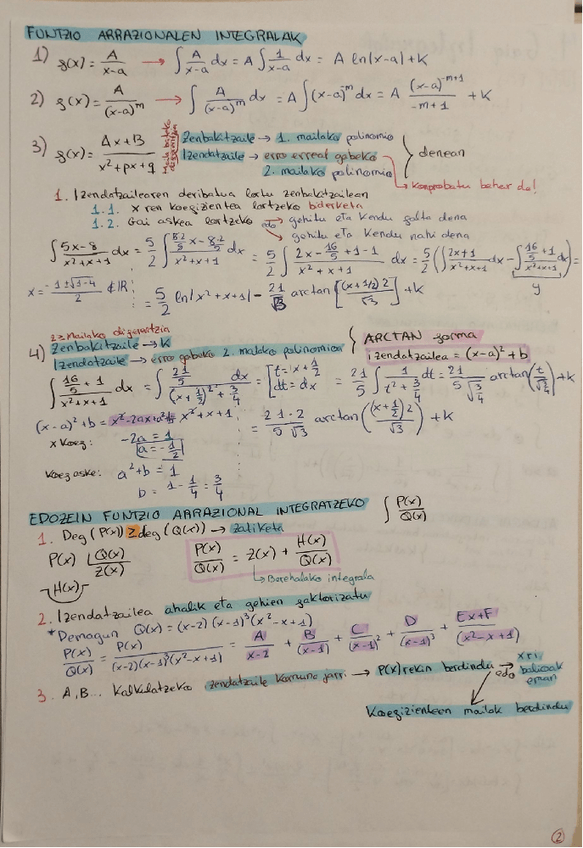 FUNTZIO ARRAZIONALEN INTEGRALAK
1) g(x) = A/(x-a) → ∫ A/(x-a) dx = A ∫ 1/(x-a) dx = A ln|x-a| + K
2) g(x) = A/(x-a)^m → ∫ A/(x-a)^m dx = A ∫ (x-a)^-m dx = A (x-a)^(-m+1)/(-m+1) + K
3) g(x) = (Ax+B)/(x²+px+q) Zenbakitzaile → 1. mailako polinomio
Izendatzaile → erro erreal gabeko
2. mailako polinomio
denean
↳ konprobatu behar da!
1. Izendatzailearen deribatua lortu zenbakitzailean
1.1. x ren koefizientea lortzeko biderketa
1.2. Gai askea lortzeko → gehitu eta kendu falta dena
edo → gehitu eta kendu nahi dena
∫ (5x-8)/(x²+x+1) dx = 5/2 ∫ dx = 5/2 ∫ (2x - 16/5 + 1 - 1)/(x²+x+1) dx = 5/2 (∫ (2x+1)/(x²+x+1) dx - ∫ (16/5 + 1)/(x²+x+1)) =
x = (-1±√(1-4))/2 ∉ ℝ
= 5/2 ln|x²+x+1| - 21/√3 arctan[(x+1/2)2/√3] + K
4) Zenbakitzaile → K
Izendatzaile → erro gabeko 2. mailako polinomioa
ARCTAN forma
izendatzailea = (x-a)² + b
∫ (16/5 + 1)/(x²+x+1) dx = ∫ (21/5)/((x+1/2)² + 3/4) dx = [t = x + 1/2
dt = dx = 21/5 ∫ 1/(t² + 3/4) dt = 21/5 arctan + K
(x-a)² + b = x² - 2ax + a² + b x² + x + 1
= 21·2/5√3 arctan((x+1/2)2/√3) + K
x koef: -2a = 1
a = -1/2
koef aske: a² + b = 1
b = 1 - 1/4 = 3/4
EDOZEIN FUNTZIO ARRAZIONAL INTEGRATZEKO ∫ P(x)/Q(x)
1. Deg(P(x)) ≥ deg(Q(x)) → zatiketa
P(x) |Q(x)
Z(x)
H(x)
P(x)/Q(x) = Z(x) + H(x)/Q(x)
↳ Berehalako integrala
2. Izendatzailea ahalik eta gehien faktorizatu
*Demagun Q(x) = (x-2)(x-1)³(x²-x+1)
P(x)/Q(x) = P(x)/((x-2)(x-1)³(x²-x+1)) = A/(x-2) + B/(x-1) + C/(x-1)² + D/(x-1)³ + (Ex+F)/(x²-x+1)
3. A, B... kalkulatzeko izendatzaile komuna jarri → P(x)rekin berdindu → x ri balioak eman
edo
Koefizienteen mailak berdindu
2